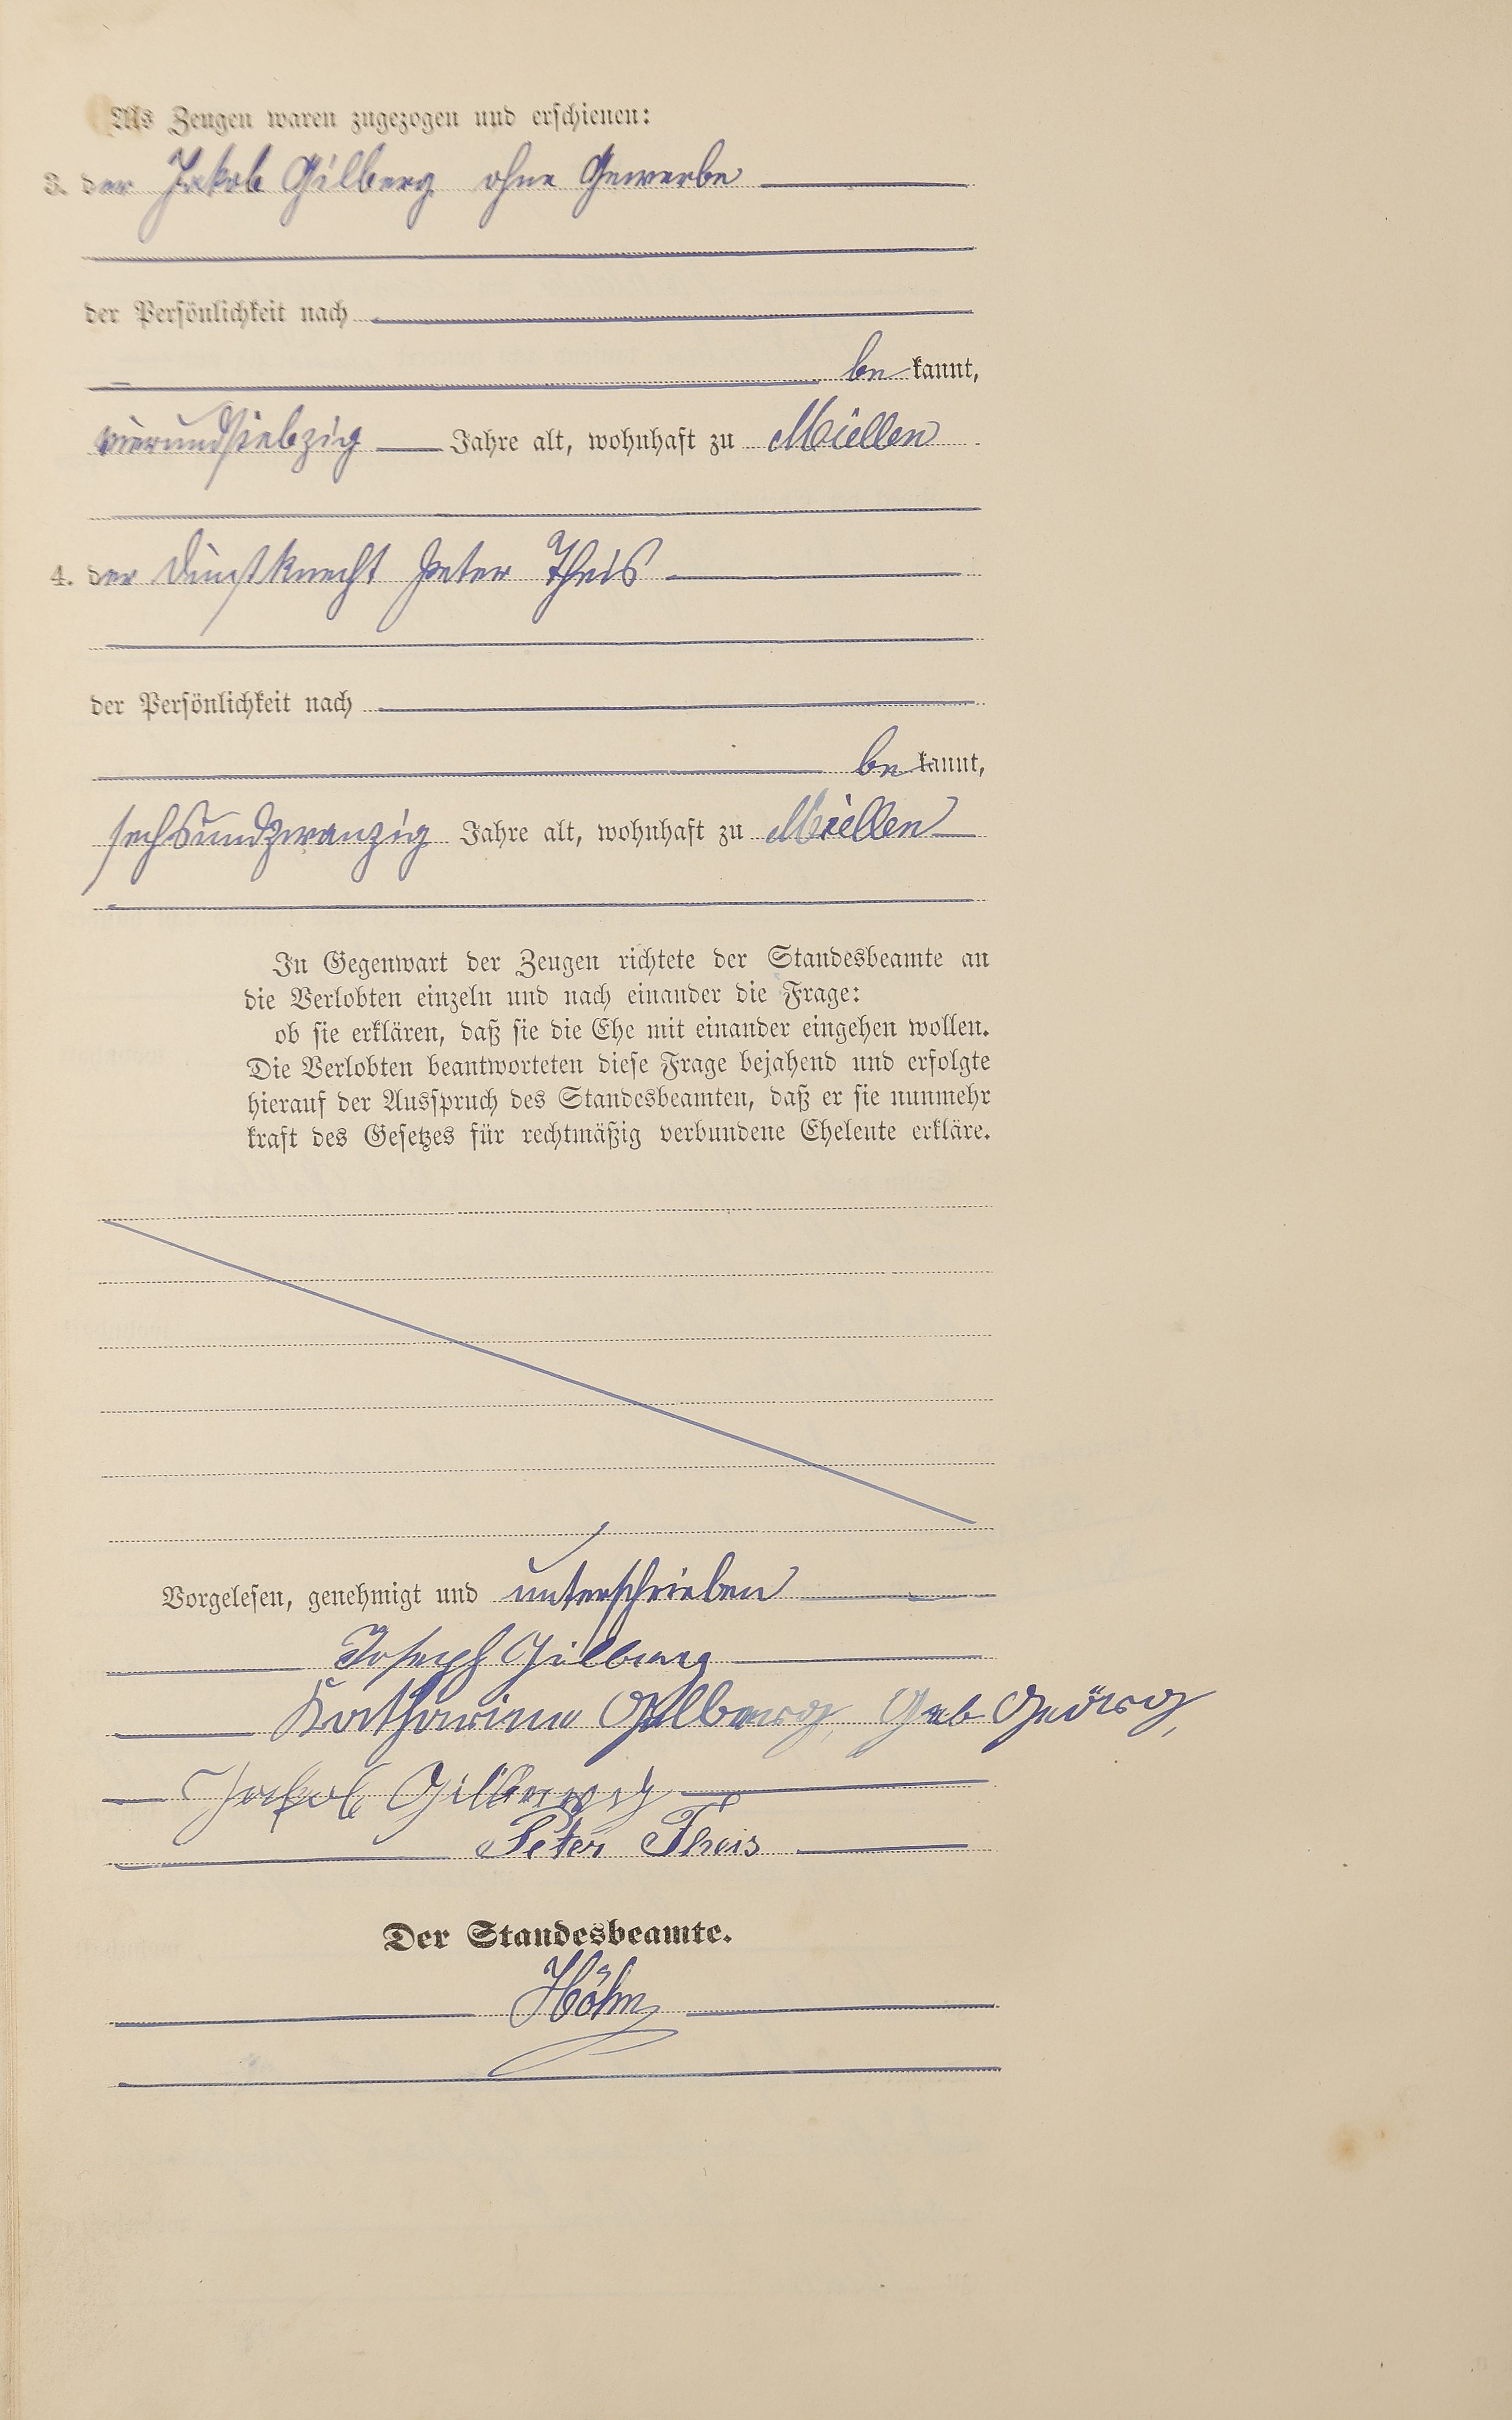 Als Zeugen waren zugezogen und erschienen:
3. der Jakob Gilberg ohne Gewerbe
der Persönlichkeit nach
bekannt,
vierundsiebzig Jahre alt, wohnhaft zu Miellen
4. der Dienstknecht Peter Theis
der Persönlichkeit nach
bekannt,
sechsundzwanzig Jahre alt, wohnhaft zu Miellen
In Gegenwart der Zeugen richtete der Standesbeamte an
die Verlobten einzeln und nach einander die Frage:
ob sie erklären, daß sie die Ehe mit einander eingehen wollen.
Die Verlobten beantworteten diese Frage bejahend und erfolgte
hierauf der Ausspruch des Standesbeamten, daß er sie nunmehr
kraft des Gesetzes für rechtmäßig verbundene Eheleute erkläre.
Vorgelesen, genehmigt und unterschrieben
Joseph Gilberg
Katharina Gilberg, Geb Geörg,
Jakob Gilberg
Peter Theis
Der Standesbeamte.
Höhn